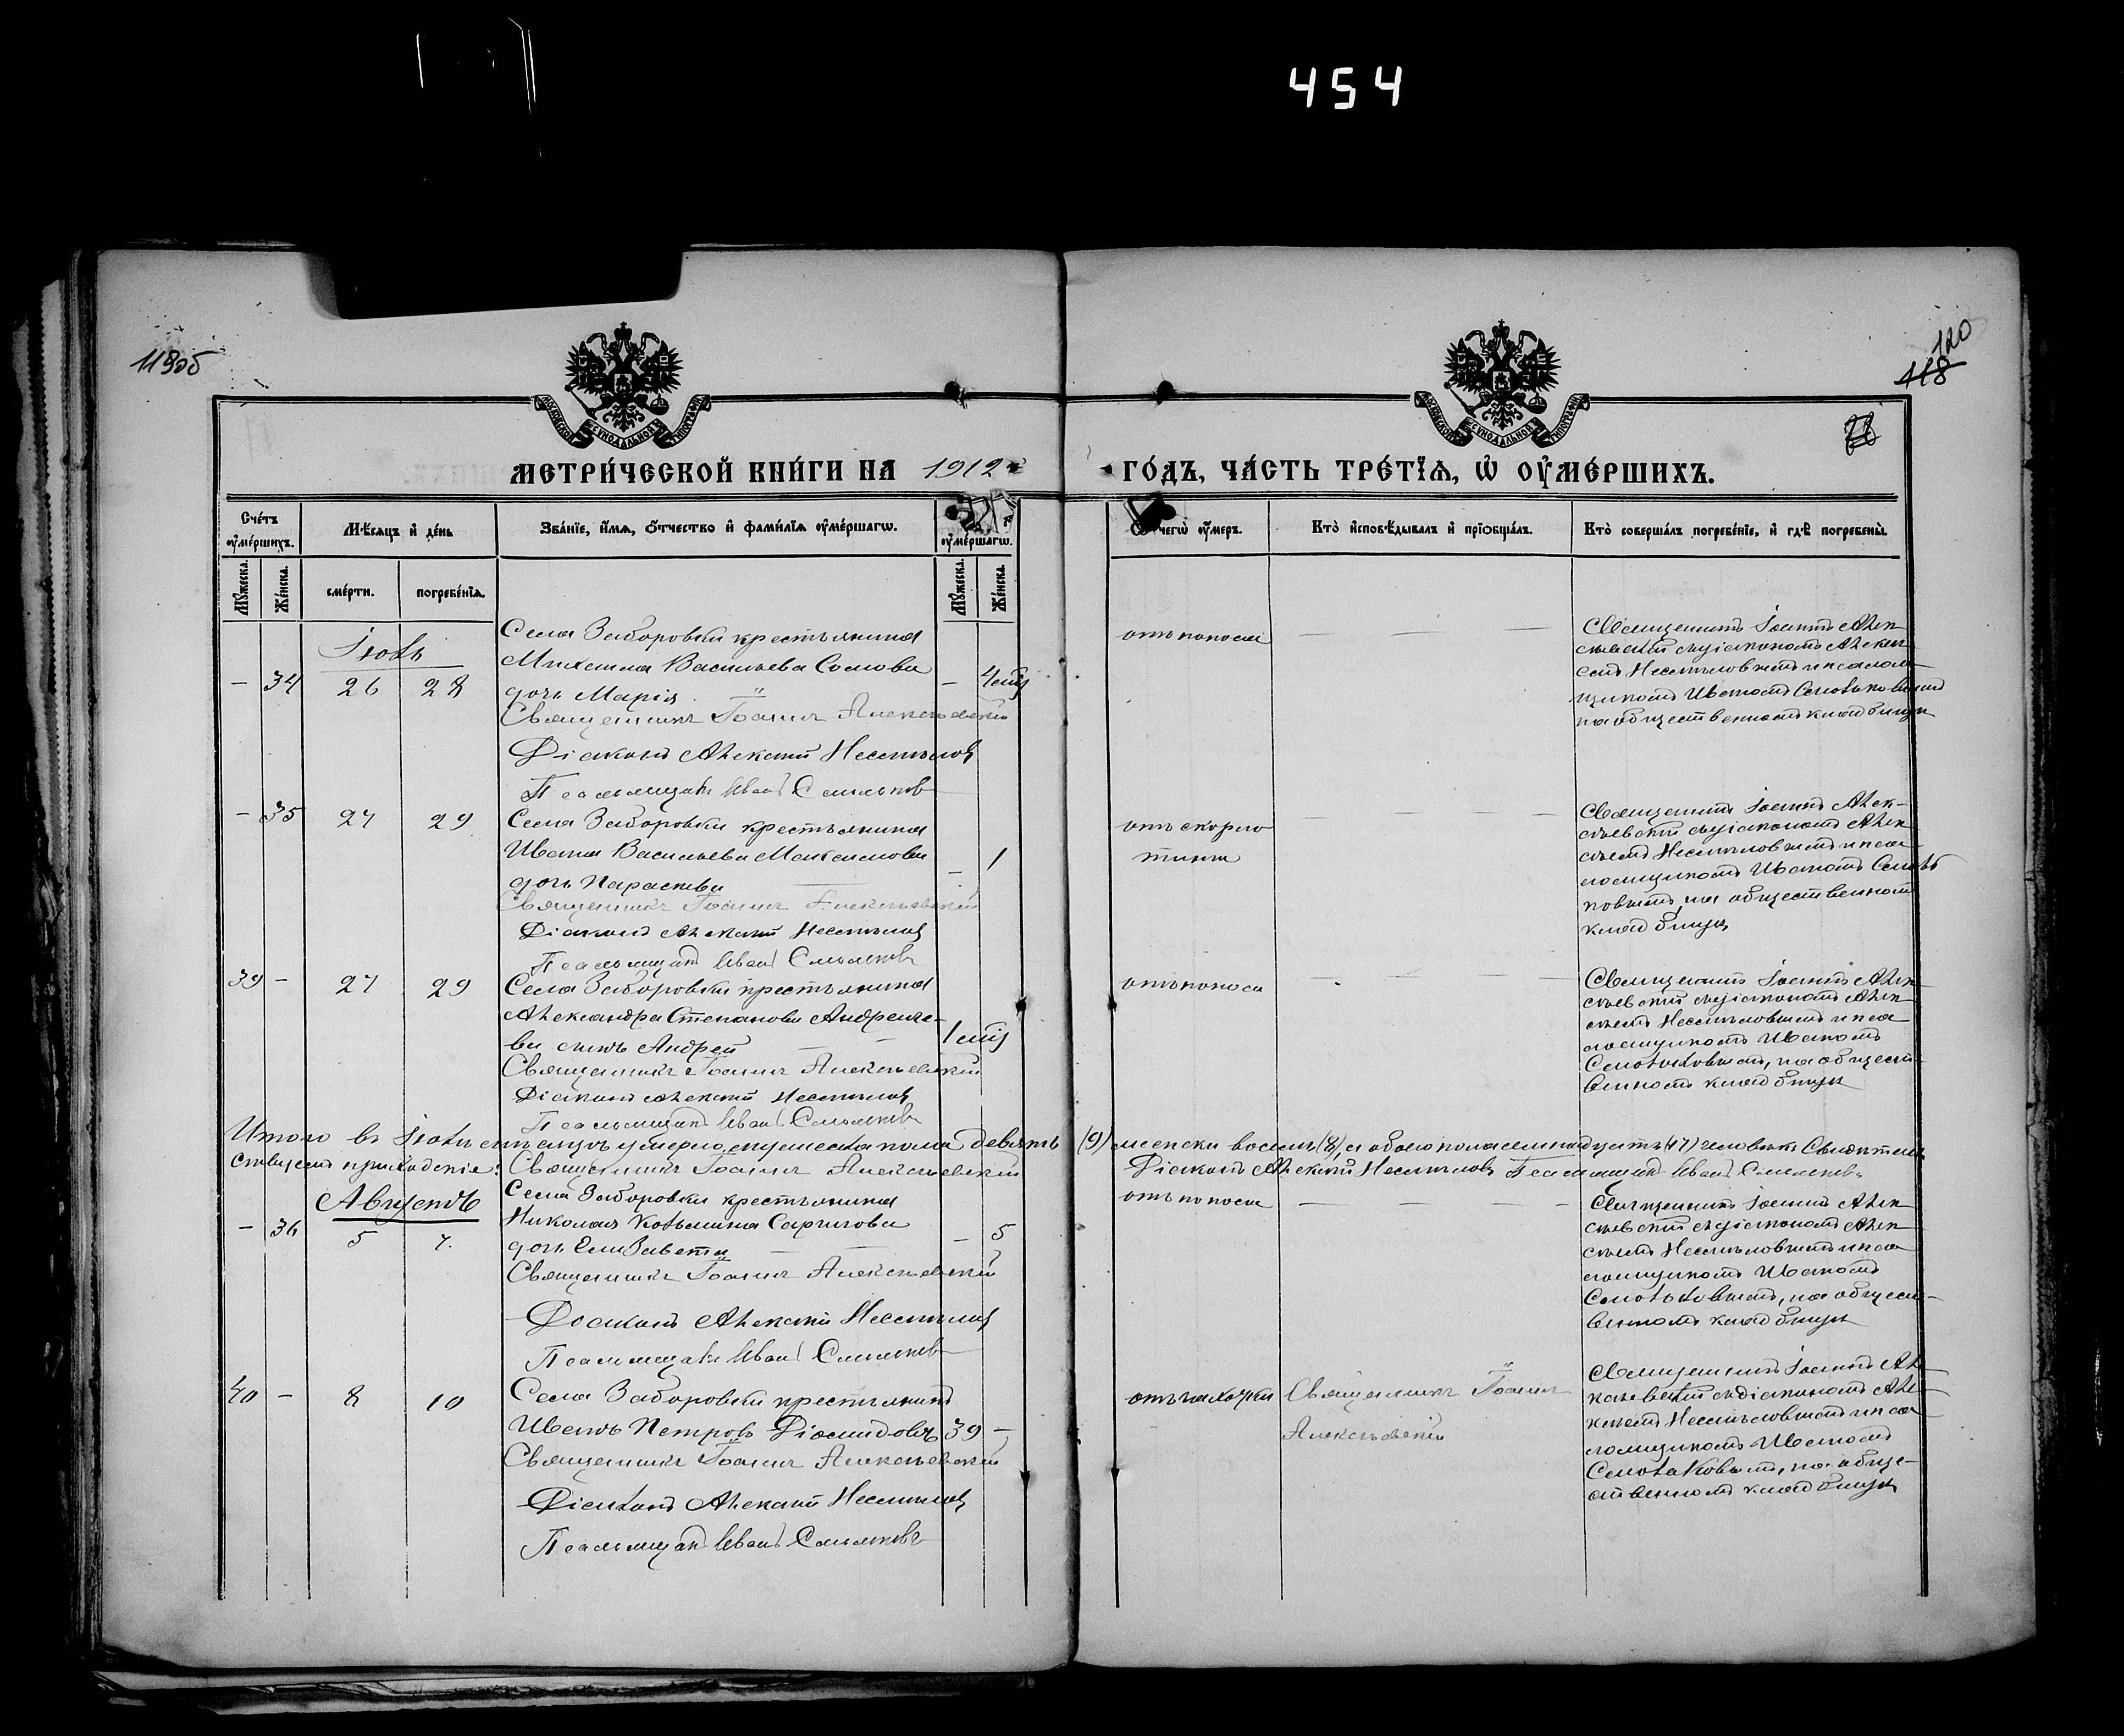 454
119об
120
118
МЕТРИ́ЧЕСКОЙ КНИ́ГИ НА 1912 ГО́ДЪ, ЧА́СТЬ ТРЕ́ТЇѦ, Ѡ҆ ОУ҆МЕ́РШИХЪ.
Сче́тъ оу҆ме́ршихъ.
Мꙋ́жеска.
Же́нска.
Мѣ́сѧцъ и҆ де́нь
сме́рти.
погребе́нїѧ.
Зва́нїе, и҆́мѧ, ѻ҆́тчество и҆ фами́лїѧ оу҆ме́ршагѡ.
оу҆ме́ршагѡ.
Мꙋ́жеска.
Же́нска.
Ѿ чегѡ̀ оу҆́меръ.
Кто̀ и҆сповѣ́дывалъ и҆ прїѡбща́лъ.
Кто̀ соверша́лъ погребе́нїе, и҆ гдѣ̀ погребены̀.
Іюль
- 34 26 28
Села Заборовки крестьянина
Михаила Васильева Сомова
дочь Марія
- 4 мц
Священникъ Іоаннъ Алексѣевскій
Діаконъ Алексій Несмѣловъ
Псаломщикъ Иванъ Смольковъ
отъ поноса
Священникъ Іоаннъ Алек-
сѣевскій съ діакономъ Алек-
сѣемъ Несмѣловымъ и псалом-
щикомъ Иваномъ Смольковымъ
на общественномъ кладбищѣ
- 35 27 29
Села Заборовки крестьянина
Ивана Васильева Максимова
дочь Параскева
- 1
Священникъ Іоаннъ Алексѣевскій
Діаконъ Алексій Несмѣловъ
Псаломщикъ Иванъ Смольковъ
отъ скорла-
тины
Священникъ Іоаннъ Алек-
сѣевскій съ діакономъ Алек-
сѣемъ Несмѣловымъ и пса-
ломщикомъ Иваномъ Смоль-
ковымъ, на общественномъ
кладбищѣ
39 - 27 29
Села Заборовки крестьянина
Александра Степанова Андреиче-
ва сынъ Андрей
1 мц
Священникъ Іоаннъ Алексѣевскій
Діаконъ Алексій Несмѣловъ
Псаломщикъ Иванъ Смольковъ
отъ поноса
Священникъ Іоаннъ Алек-
сѣевскій съ діакономъ Алек-
сѣемъ Несмѣловымъ и пса-
ломщикомъ Иваномъ
Смольковымъ, на общест-
венномъ кладбищѣ
Итого въ Іюлѣ мѣсяцѣ умерло мужеска пола девять (9) женска восемь (8), а обоего пола семнадцать (17) человекъ Свидѣтель-
ствуемъ Священникъ Іоаннъ Алексѣевскій Діаконъ Алексій Несмѣловъ Псаломщикъ Иванъ Смольковъ
Августъ
- 36 5 7.
Села Заборовки крестьянина
Николая Козьмина Сарычова
дочь Елизавета
- 5
Священникъ Іоаннъ Алексѣевскій
Діаконъ Алексій Несмѣловъ
Псаломщикъ Иванъ Смольковъ
отъ поноса
Священникъ Іоаннъ Алек-
сѣевскій съ діакономъ Алек-
сѣемъ Несмѣловымъ и пса-
ломщикомъ Иваномъ
Смольковымъ, на общест-
венномъ кладбищѣ
40 - 8 10
Села Заборовки крестьянинъ
Иванъ Петровъ Діомидовъ
39 -
Священникъ Іоаннъ Алексѣевскій
Діаконъ Алексій Несмѣловъ
Псаломщикъ Иванъ Смольковъ
отъ чахотки
Священникъ Іоаннъ
Алексѣевскій
Священникъ Іоаннъ Але-
ксѣевскій съ діакономъ Але-
ксѣемъ Несмѣловымъ и пса-
ломщикомъ Иваномъ
Смольковымъ, на обще-
ственномъ кладбищѣ